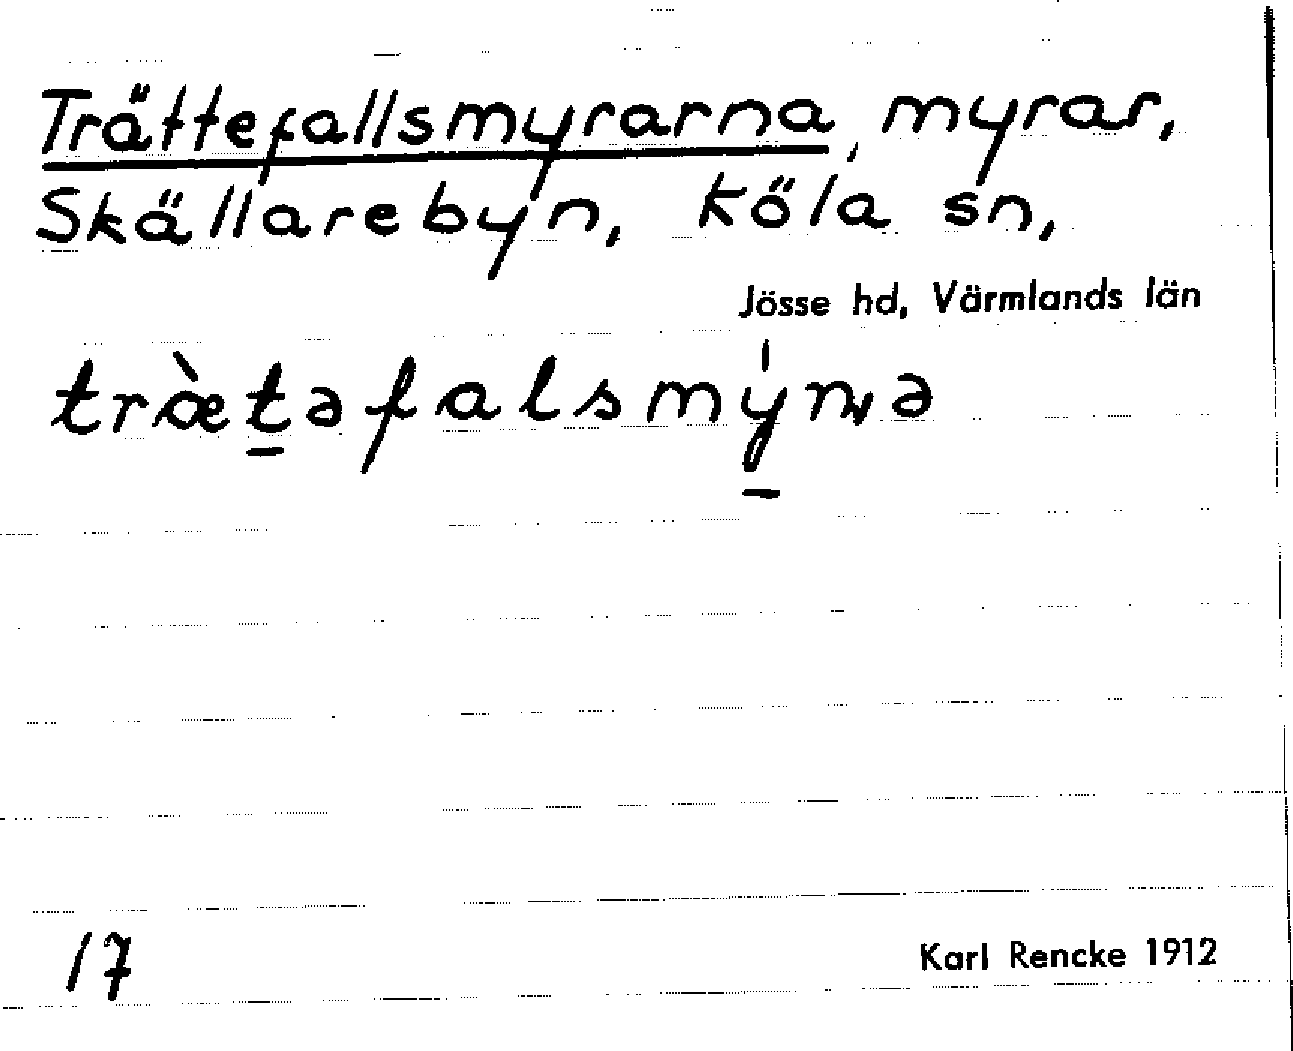 Trättefallsmyrarna, myrar,
Skällarebyn, Köla sn,
Jösse hd, Värmlands län
træ̀t̠əfalsmý̠n̡ə
17
Karl Rencke 1912